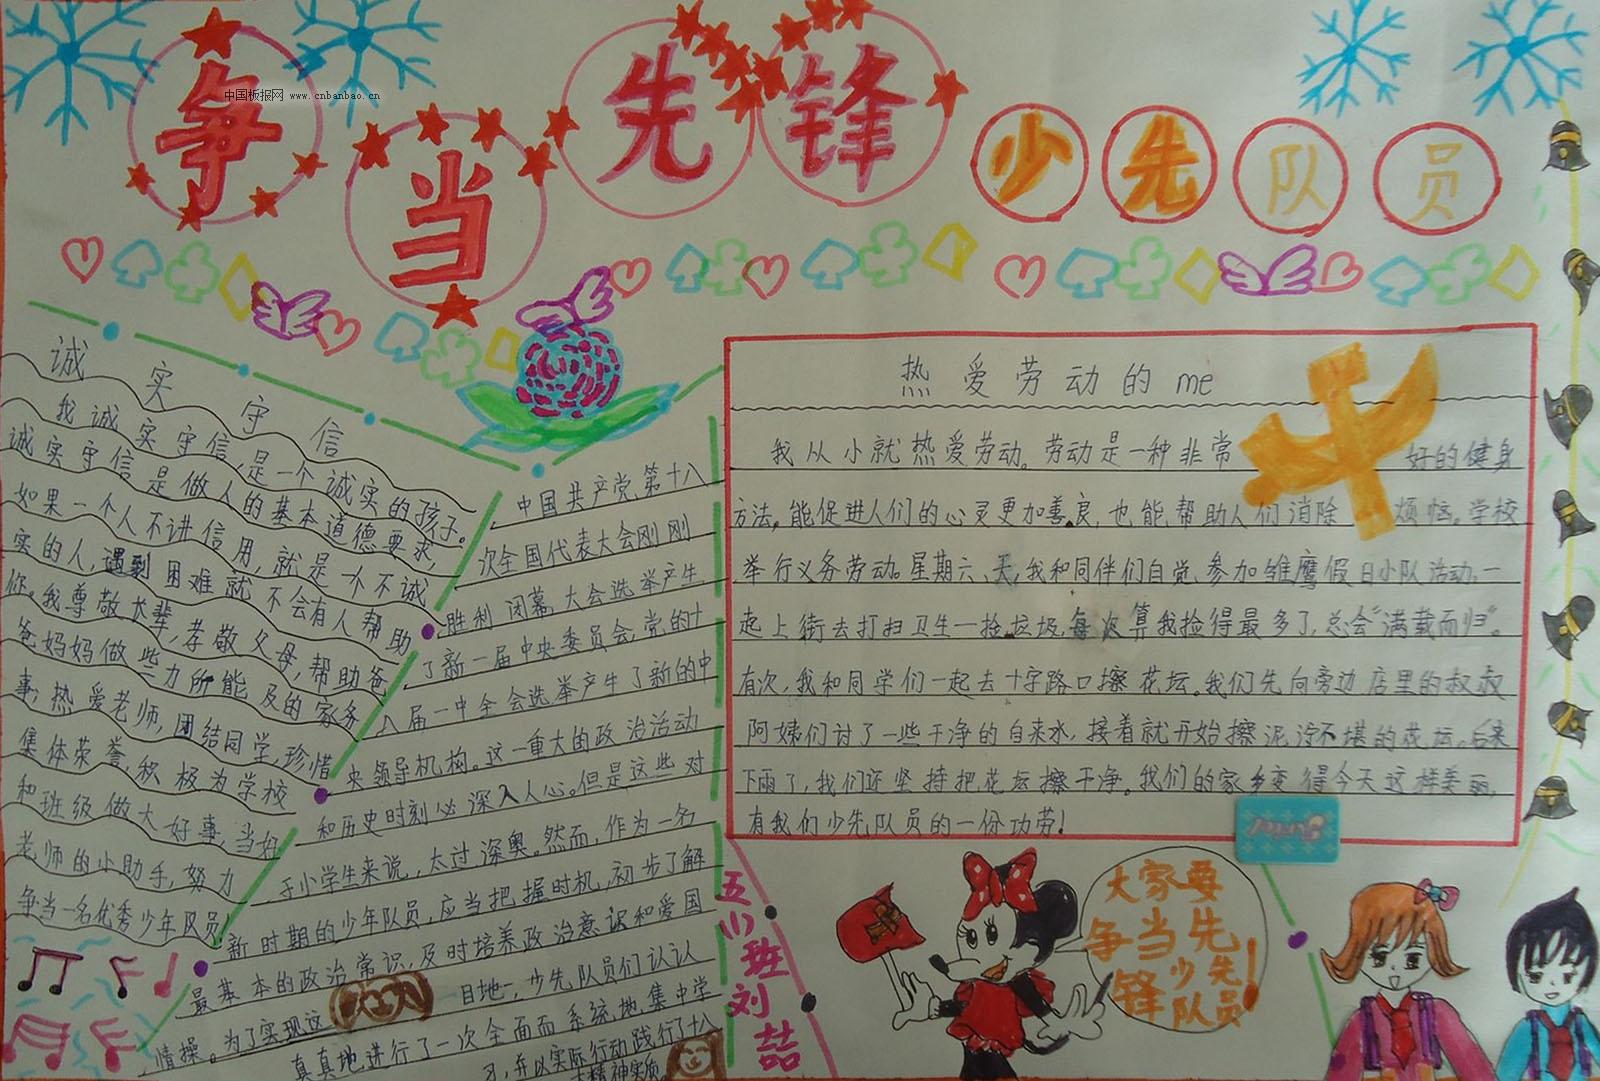 争当先锋少先队员
中国板报网 www.cnbanbao.cn
诚实守信
我诚实守信,是一个诚实的孩子。
诚实守信是做人的基本道德要求,
如果一个人不讲信用,就是一个不诚
实的人,遇到困难就不会有人帮助
你。我尊敬长辈,孝敬父母,帮助爸
爸妈妈做些力所能及的家务
事;热爱老师,团结同学,珍惜
集体荣誉,积极为学校
和班级做大好事,当好
老师的小助手,努力
争当一名优秀少年队员!
中国共产党第十八
次全国代表大会刚刚
胜利闭幕,大会选举产生
了新一届中央委员会,党的十
八届一中全会选举产生了新的中
央领导机构。这一重大的政治活动
和历史时刻必深入人心。但是这些对
于小学生来说,太过深奥。然而,作为一名
新时期的少年队员,应当把握时机,初步了解
最基本的政治常识,及时培养政治意识和爱国
情操。为了实现这目地一,少先队员们认认
真真地进行了一次全面而系统地集中学
习,并以实际行动践行了十八
大精神实质。
热爱劳动的me
我从小就热爱劳动。劳动是一种非常好的健身
方法,能促进人们的心灵更加善良,也能帮助人们消除烦恼。学校
举行义务劳动。星期六、天,我和同伴们自觉参加雏鹰假日小队活动,一
起上街去打扫卫生一捡垃圾,每次算我捡得最多了,总会“满载而归”。
有次,我和同学们一起去十字路口擦花坛。我们先向旁边店里的叔叔
阿姨们讨了一些干净的自来水,接着就开始擦泥泞不堪的花坛,后来
下雨了,我们还坚持把花坛擦干净。我们的家乡变得今天这样美丽,
有我们少先队员的一份功劳!
五(1)班刘喆
大家要
争当先
锋少先
队员!